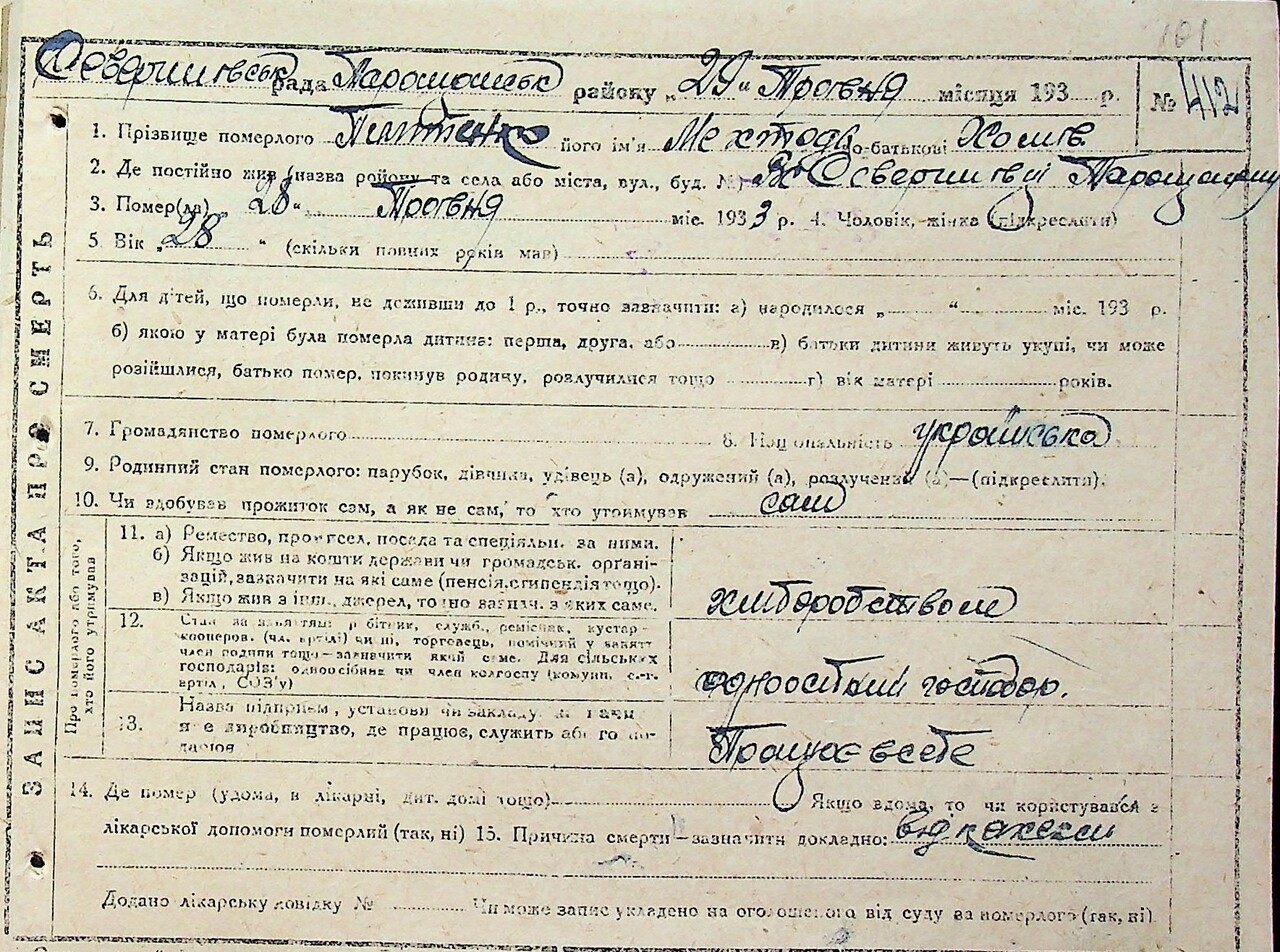 101.
рада район у „29“ Травня місяця 193 р. № 412
1. Прізвище померлого його ім'я по-батькові Хомів
2. Де постійно жив (назва району та села або міста, вул., буд. №)
3. Помер(ла) „28“ Травня міс. 1933 р. 4. Чоловік, жінка (підкреслити)
5. Вік „28 “ (скільки повних років мав)
6. Для дітей, що померли, не доживши до 1 р., точно зазначити: а) народилося „ “ міс. 193 р.
б) якою у матері була померла дитина: перша, друга, або в) батьки дитини живуть укупі, чи може
розійшлися, батько помер, покинув родину, розлучилися тощо г) вік матері років.
7. Громадянство померлого 8. Національність українська
9. Родинний стан померлого: парубок, дівчина, удівець (а), одружений (а), розлучений (а)—(підкреслити).
10. Чи здобував прожиток сам, а як не сам, то хто утримував сам
ЗАПИС АКТА ПРО СМЕРТЬ
Про померлого або того, хто його утримував
11. а) Ремество, професія, посада та спеціяльн. за ними.
б) Якщо жив на кошти держави чи громадськ. органі-
зацій, зазначити на які саме (пенсія, стипендія тощо).
в) Якщо жив з інш. джерел, точно зазнач. з яких саме.
хліборобством
12. Стан за заняттям: робітник, служб., ремісник, кустар-
кооперов. (чл. артілі) чи ні, торговець, помічний у занятті
член родини тощо—зазначити який саме. Для сільських
господарів: одноосібник чи член колгоспу (комуни, с.-г.
артіл, СОЗ'у)
одноосібний господар.
13. Назва підприєм., установи чи закладу,
виробництво, де працює, служить або го по-
Працює в себе
14. Де помер (удома, в лікарні, дит. домі тощо) Якщо вдома, то чи користувався з
лікарської допомоги померлий (так, ні) 15. Причина смерти—зазначити докладно: від кахексії
Додано лікарську довідку № Чи може запис укладено на оголошення від суду за померлого (так, ні)